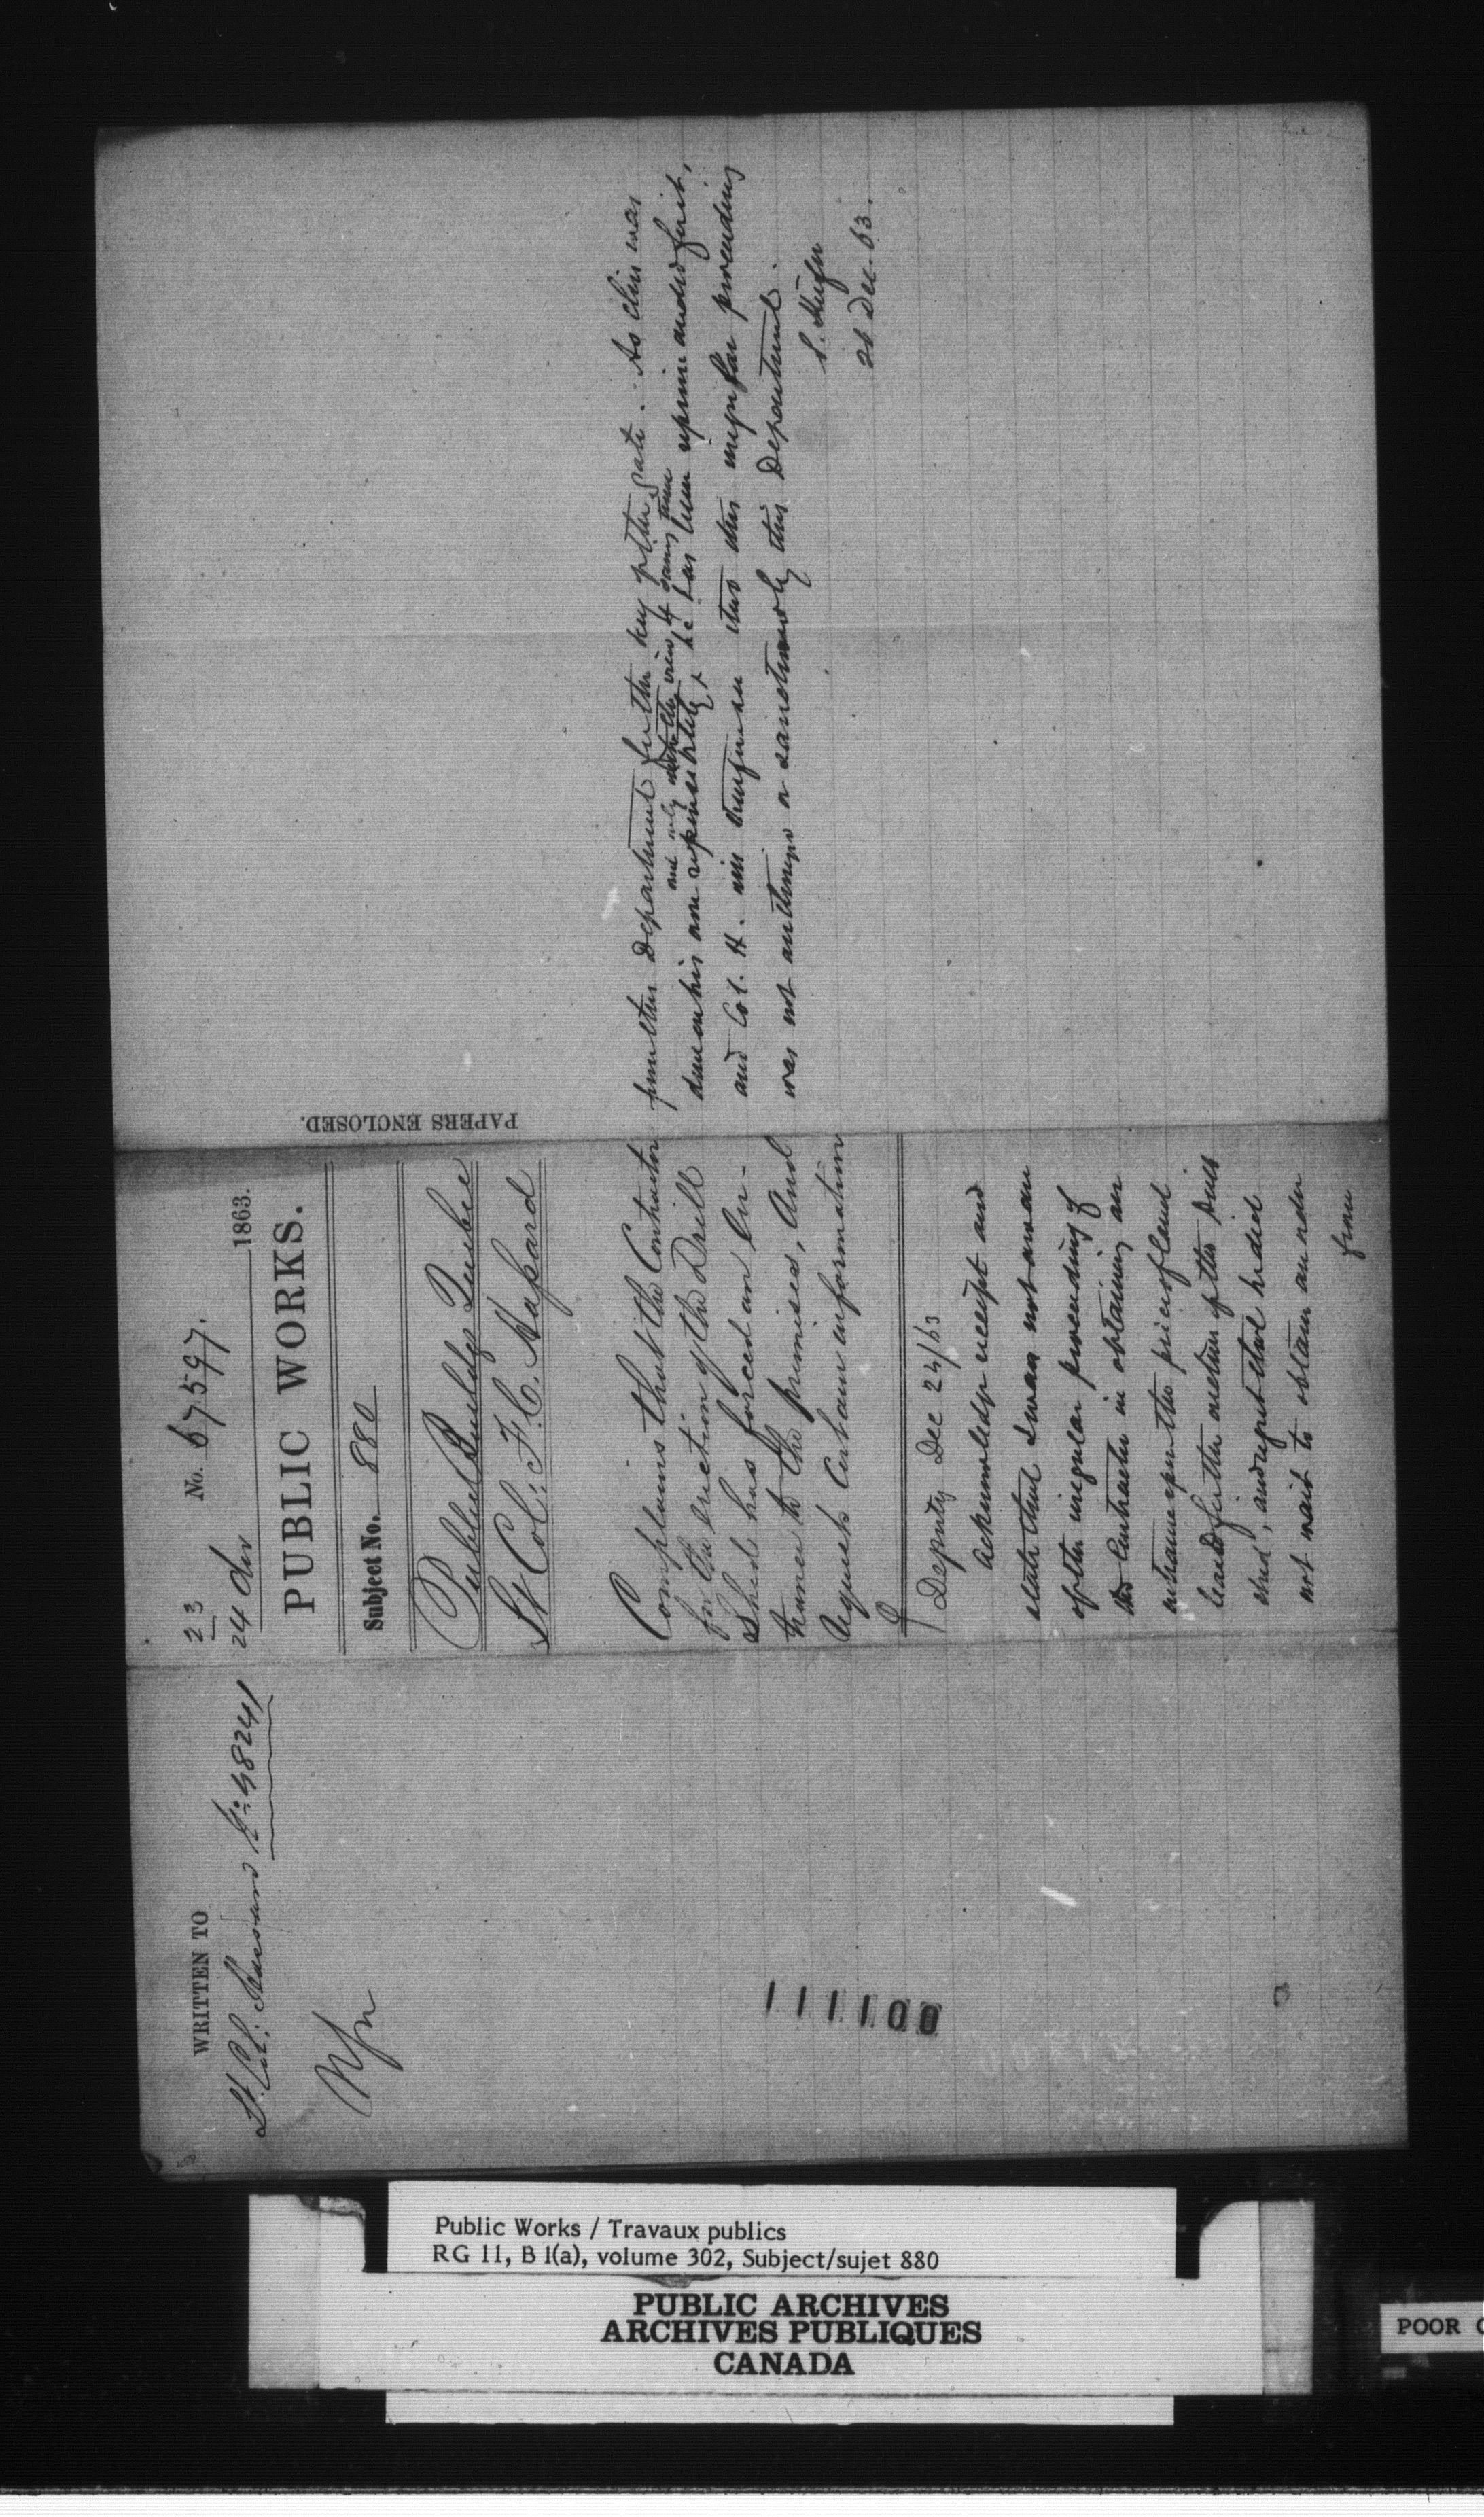 WRITTEN TO
Lt. Col. Hassard No 48241
23
24 Dec
No. 67597.
1863.
PUBLIC WORKS.
Subject No. 880
Public Buildgs Quebec
Lt Col: F. C. Hassard
Complains that the Contractor
for the erection of the Drill
Shed has forced an En-
trance to the premises, And
requests certain information
Deputy Dec 24/63
Acknowledge receipt and
state that I was not aware
of the irregular proceeding of
the Contractor in obtaining an
entrance upon the piece of land
leased for the erection of the Drill
shed, and regret that he did
not wait to obtain an order
from
PAPERS ENCLOSED.
from this Department for the key of the gate. As this was
and only with the view of saving time
done on his own responsibility & he has been reprimanded for it,
and Col. H. will understand that this irregular proceeding
was not authorized or sanctioned by this Department.
24 Dec. 63.
111100
Public Works / Travaux publics
RG 11, B 1(a), volume 302, Subject/sujet 880
PUBLIC ARCHIVES
ARCHIVES PUBLIQUES
CANADA
POOR